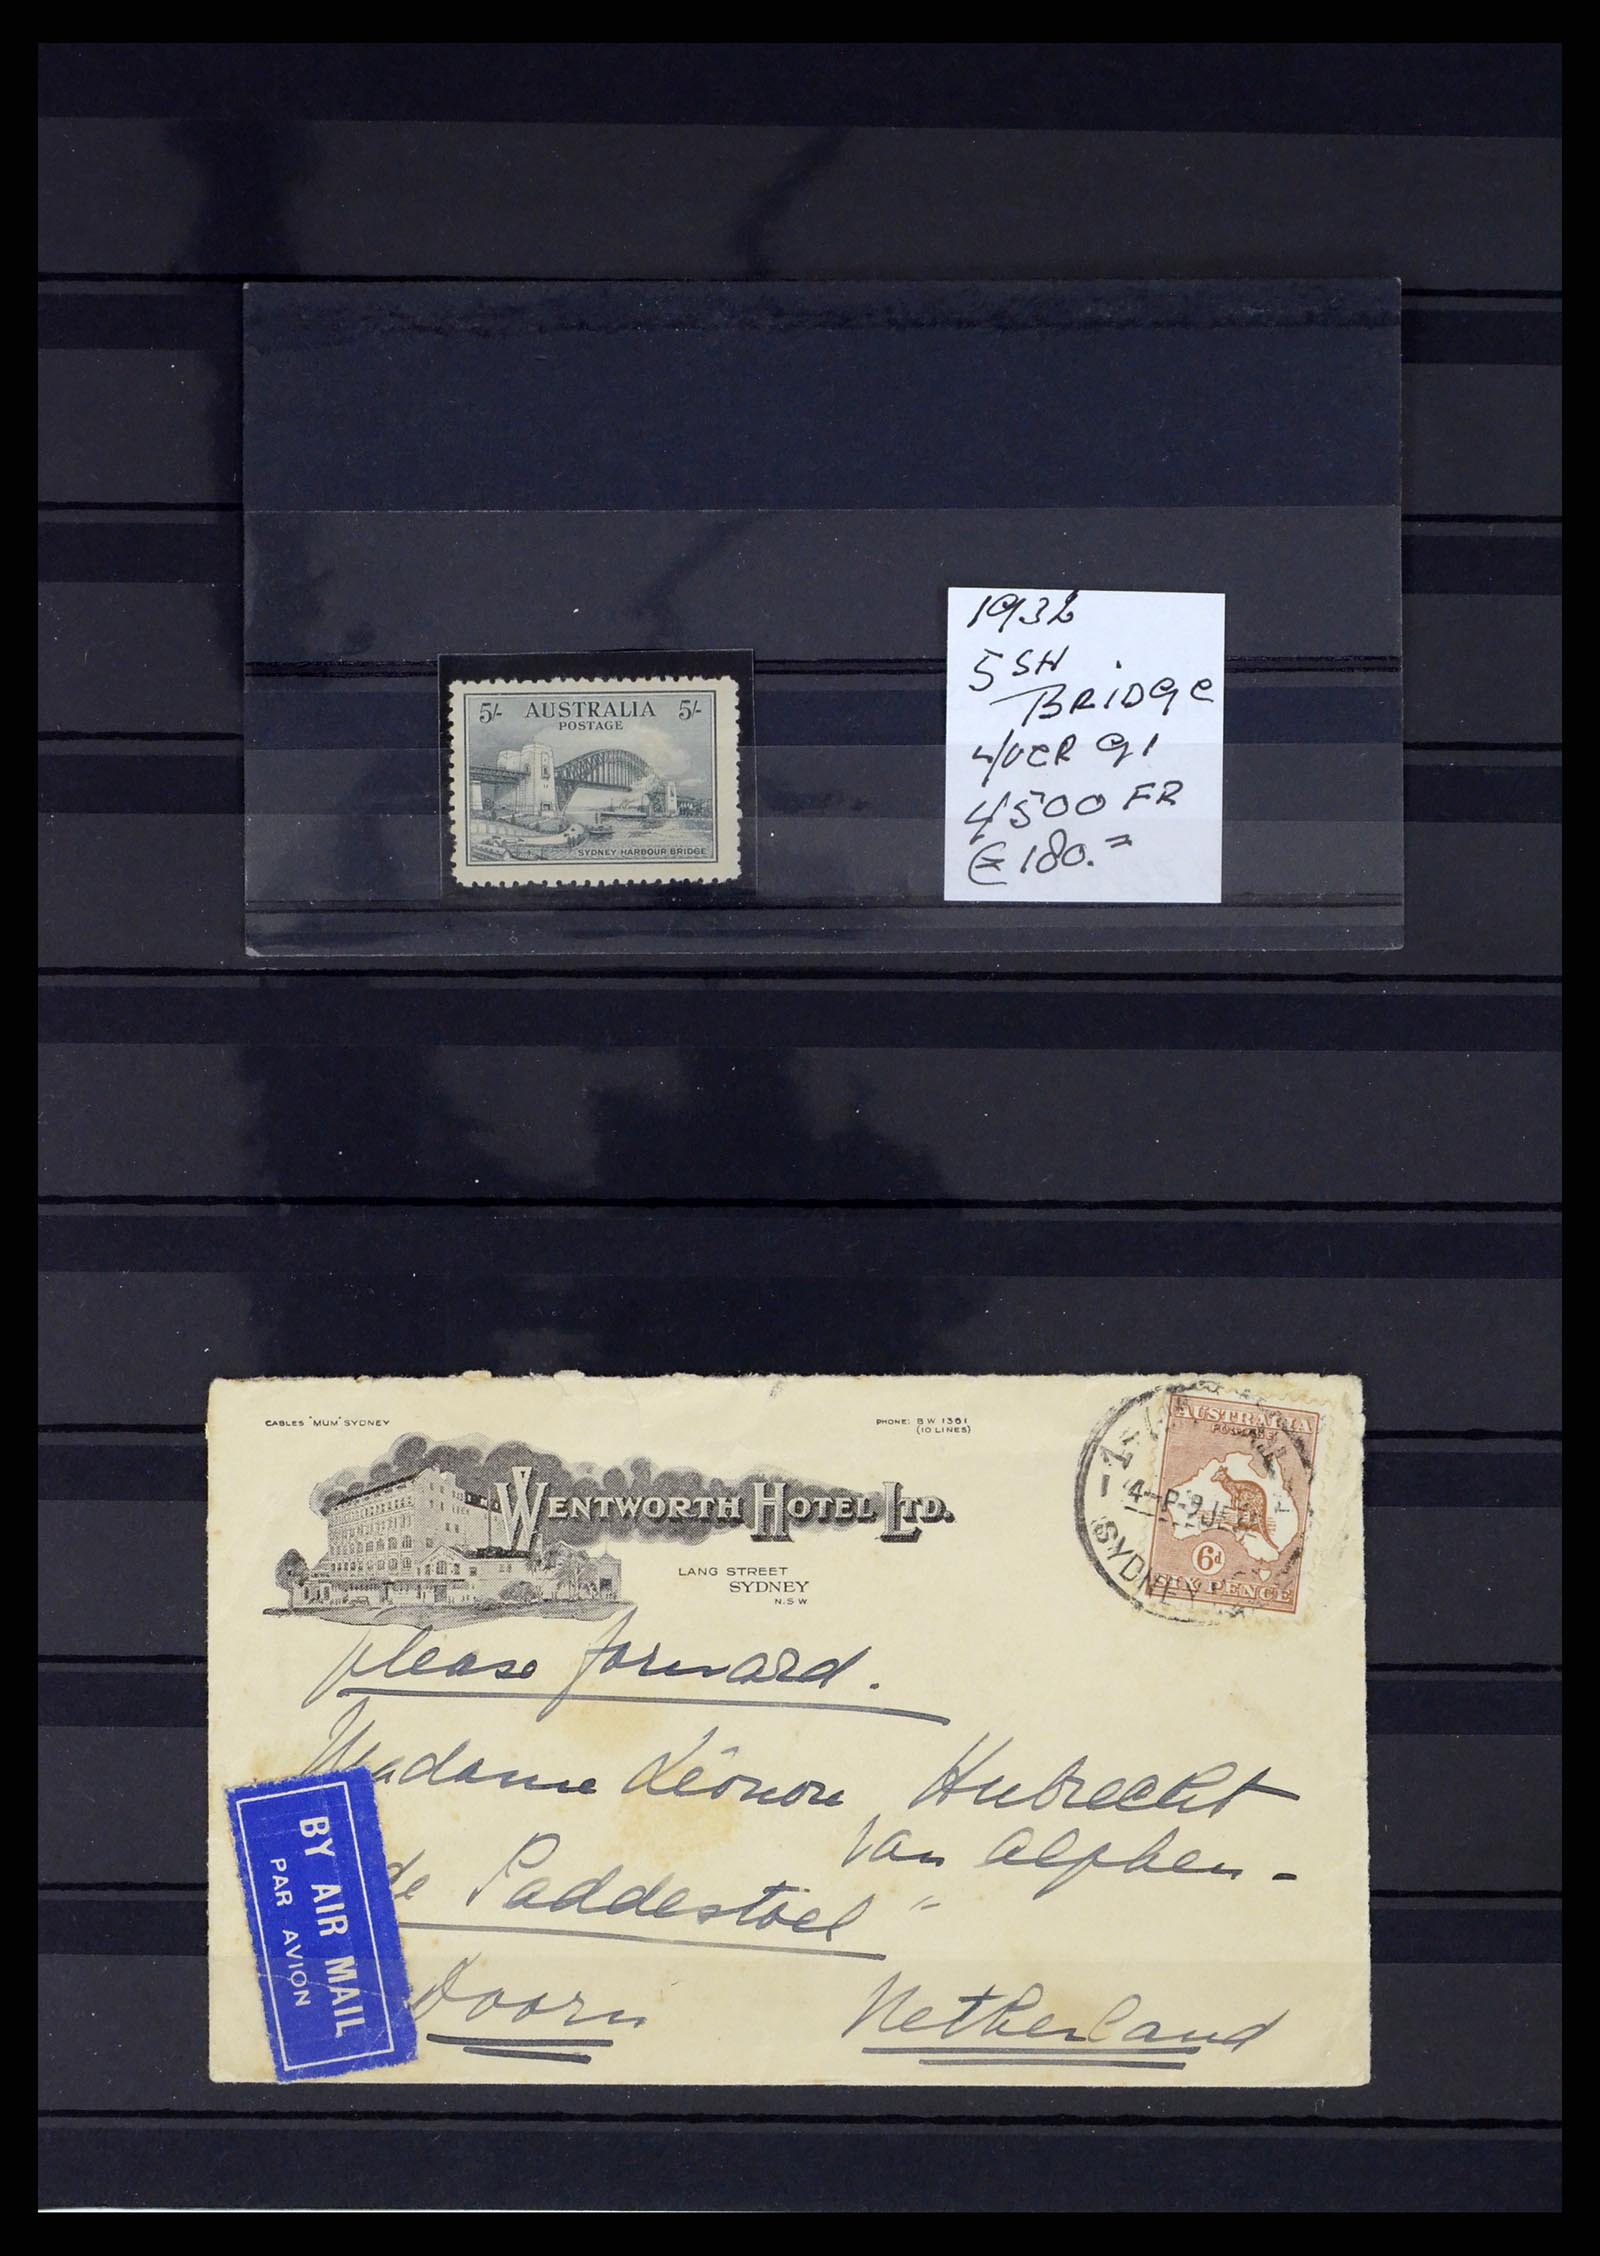 5/- AUSTRALIA 5/-
POSTAGE
SYDNEY HARBOUR BRIDGE
1932
5 SH
BRIDGE
YVER 91
4500 FR
€ 180.=
CABLES "MUM" SYDNEY
PHONE: BW 1361
(10 LINES)
WENTWORTH HOTEL LTD.
LANG STREET
SYDNEY
N.S.W
AUSTRALIA
POSTAGE
6d
SIX PENCE
SYDNEY
please forward.
Madame Léonore Hubrecht
van Alphen -
de Paddestoel"
Doorn Netherland
BY AIR MAIL
PAR AVION